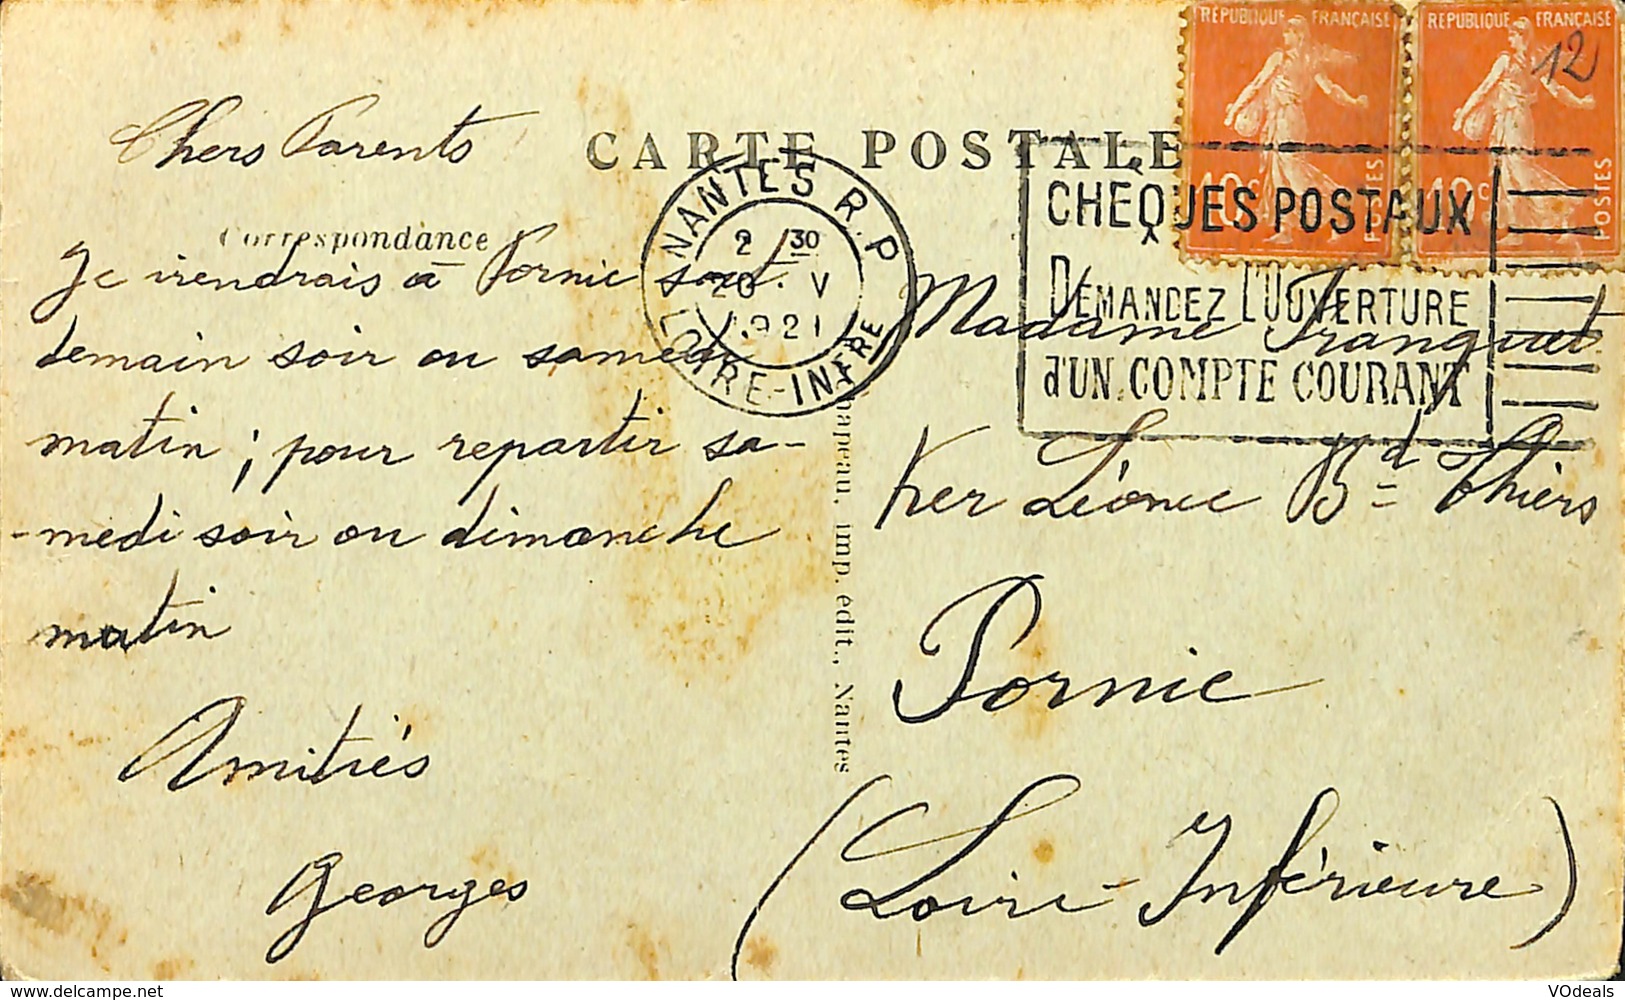 RÉPUBLIQUE FRANÇAISE
RÉPUBLIQUE FRANÇAISE
12
10c POSTES
10c POSTES
CARTE POSTALE
Correspondance
NANTES R.P.
2 30
20 V
1921
LOIRE-INFRE
CHÈQUES POSTAUX
DEMANDEZ L'OUVERTURE
d'UN COMPTE COURANT
Chers Parents
Je viendrais à Pornic soit
demain soir ou samedi
matin ; pour repartir sa-
-medi soir ou dimanche
matin
Amitiés
Georges
Chapeau, imp. édit., Nantes
Madame Franquet
Ker Léonce Bd Thiers
Pornic
(Loire-Inférieure)
VOdeals
www.delcampe.net